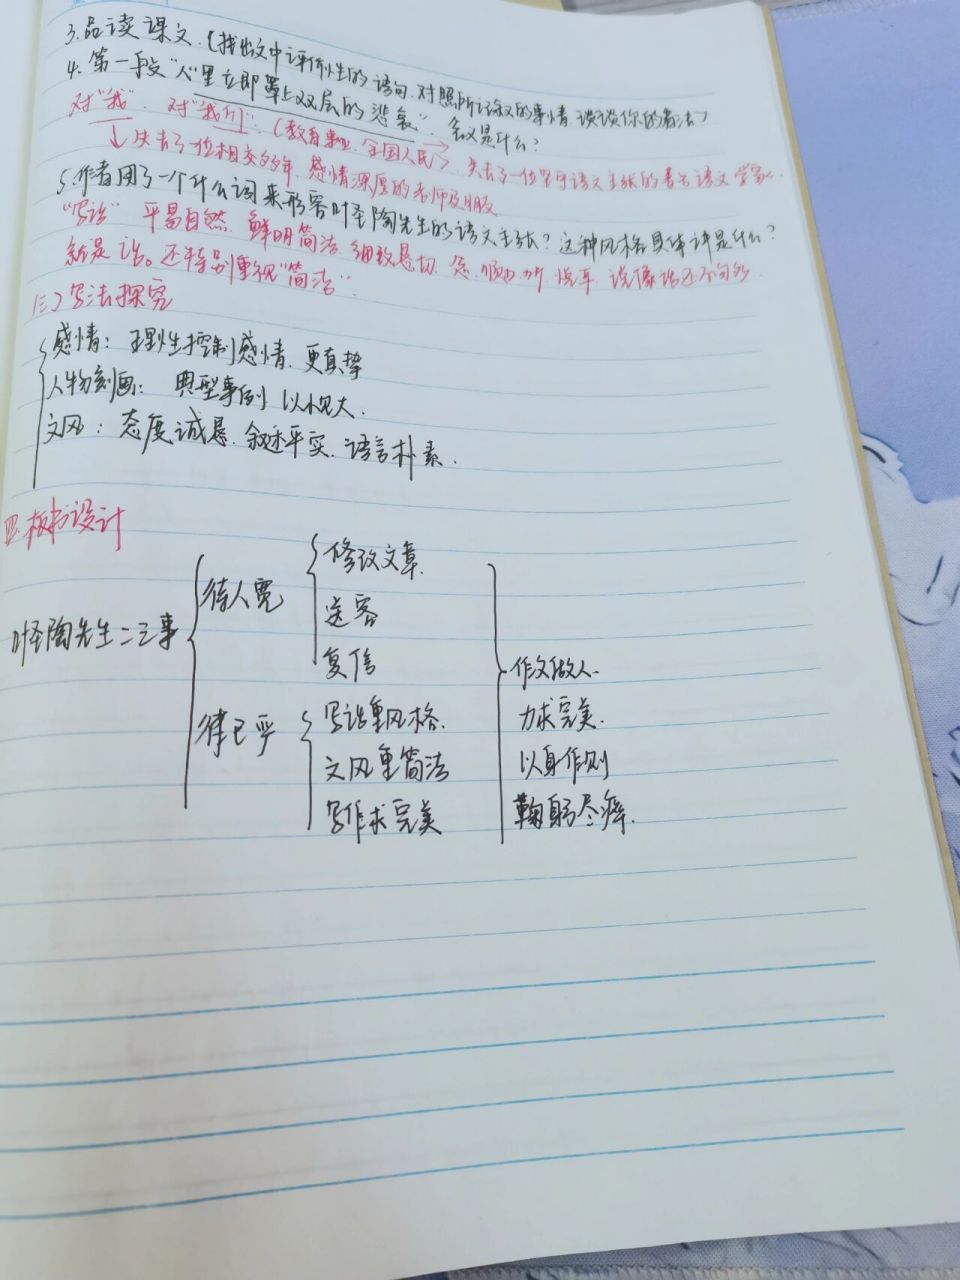 3.品读课文.(找出文中评价性的语句.对照所记叙的事情.谈谈你的看法)
4.第一段"心里立即罩上双层的悲哀".含义是什么?
对"我". 对"我们":(教育事业.全国人民)→失去了一位坚守语文主张的著名语文学家.
↓失去了一位相交多年.感情深厚的老师及朋友
5.作者用了一个什么词来形容叶圣陶先生的语文主张?这种风格具体讲是什么?
"写话" 平易自然.鲜明简洁.细致恳切.念.顺口.听.悦耳.说像话还不够.
就是话。还特别重视"简洁".
(三)写法探究
感情:理性控制感情.更真挚
人物刻画: 典型事例 以小见大.
文风:态度诚恳.叙述平实.语言朴素.
四.板书设计
叶圣陶先生二三事
待人宽
修改文章.
送客
复信
律己严
写话重风格.
文风重简洁
写作求完美
作文做人.
力求完美.
以身作则
鞠躬尽瘁.